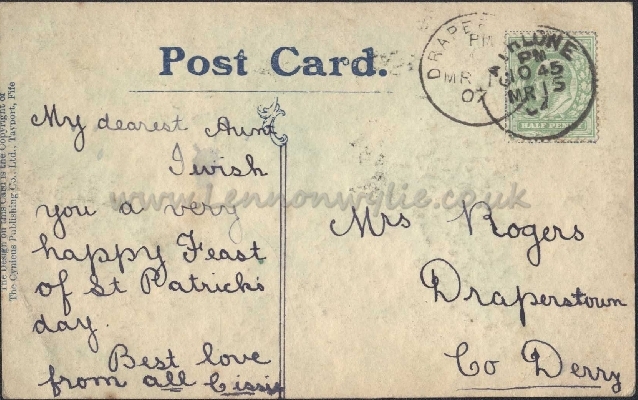 Post Card.
The Design on this Card is the Copyright of
The Cynicus Publishing Co., Ltd., Tayport, Fife
My dearest Aunt
I wish
you a very
happy Feast
of St Patrick's
day.
Best love
from all Cissie
Mrs Rogers
Draperstown
Co Derry
DRAPE
PM
MR 1
07
PM
10 45
MR 15
07
HALF PENNY
www.Lennonwylie.co.uk